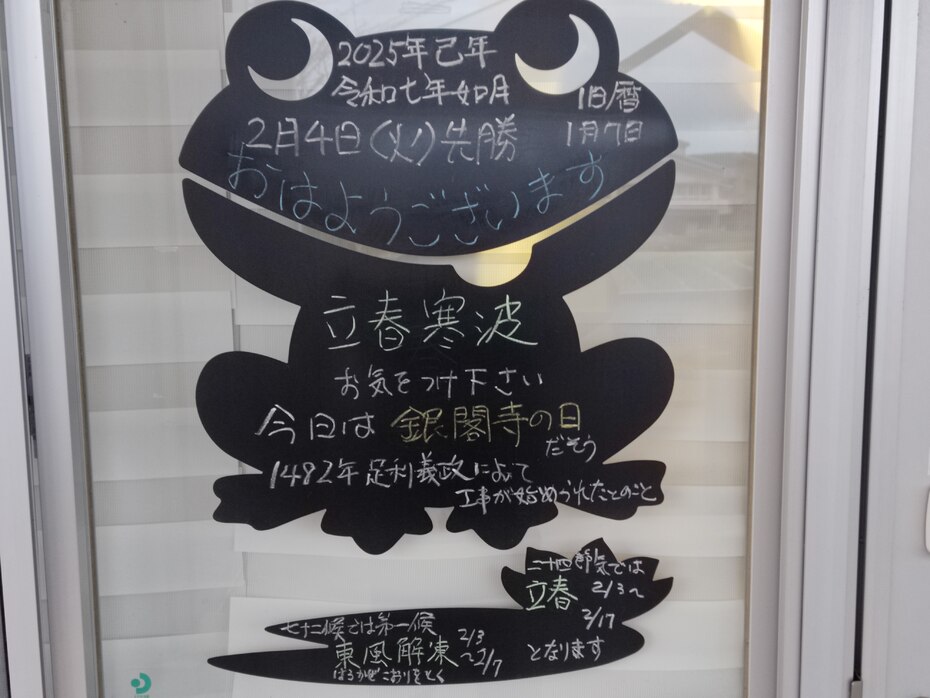 2025年己年
令和七年如月
旧暦
2月4日(火)先勝
1月7日
おはようございます
立春寒波
お気をつけ下さい
今日は銀閣寺の日
だそう
1482年足利義政によって
工事が始められたとのこと
二十四節気では
立春 2/3~
2/17
となります
七十二候では第一候
東風解凍 2/3
~2/7
はるかぜこおりをとく